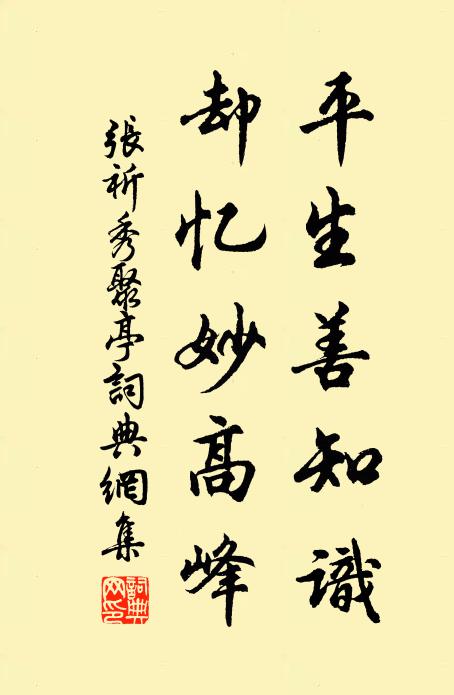 平生善知識
却忆妙高峰
張祈秀聚亭詞典網集
詞典网印